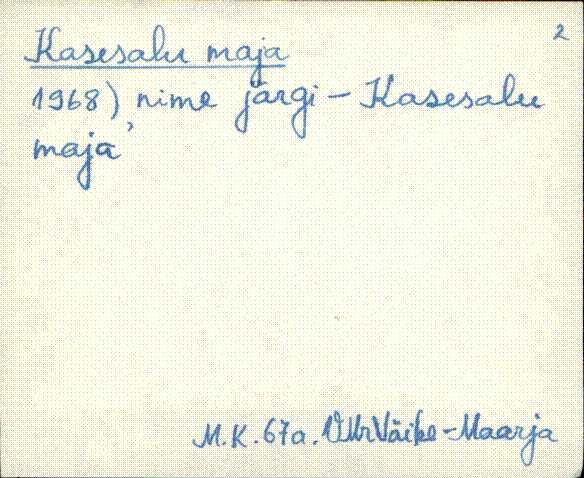 Kasesalu maja
2
1968) nime järgi - Kasesalu
maja'
M.K. 67a. VMr Väike-Maarja